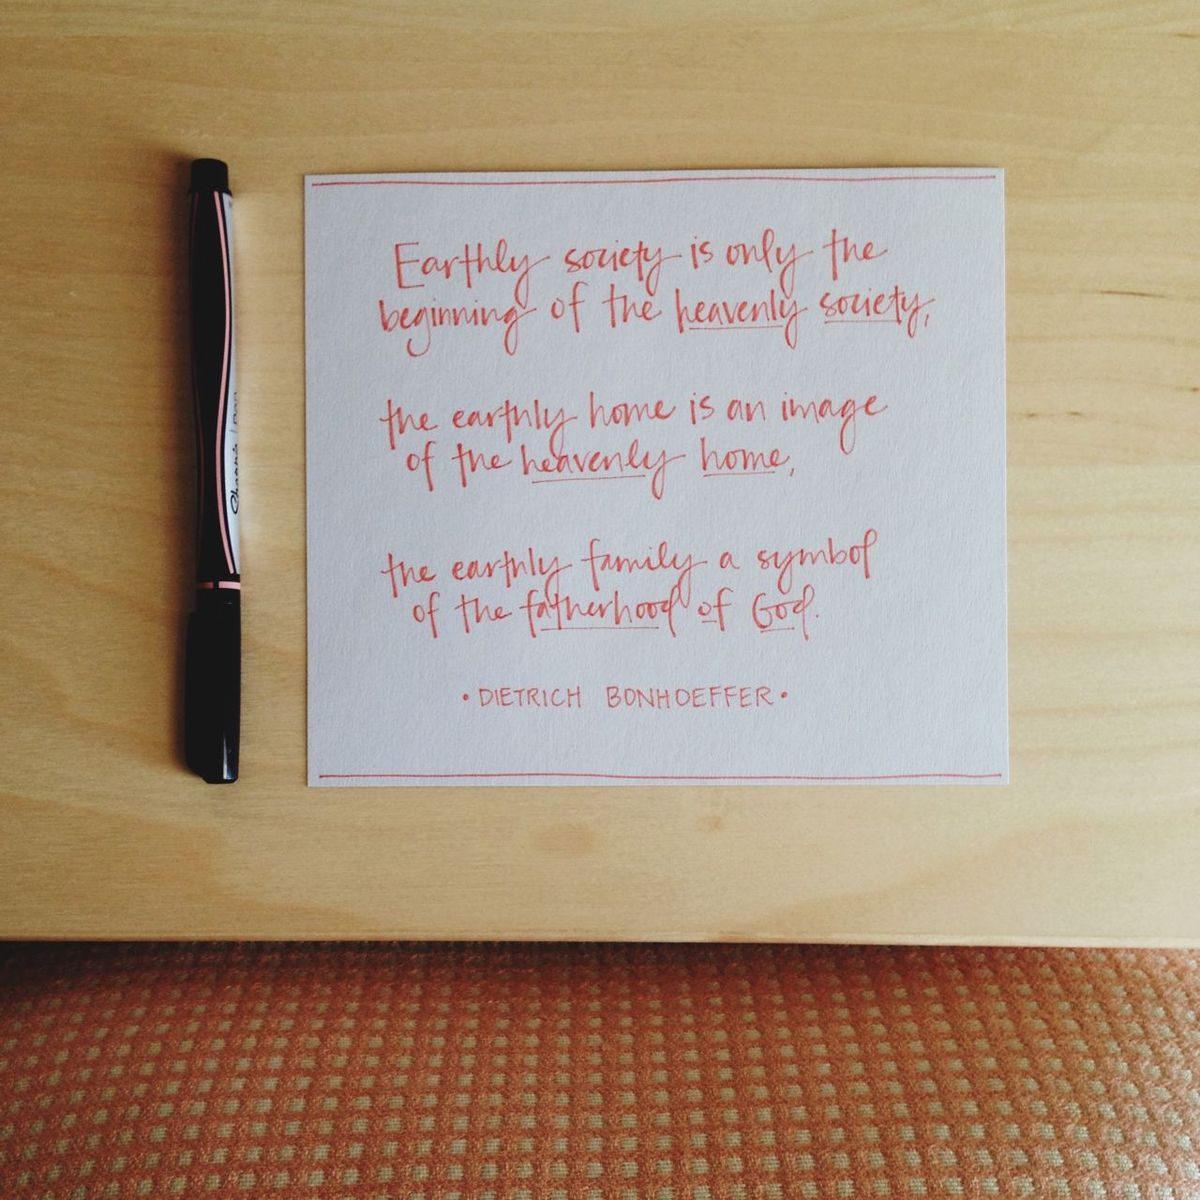 Sharpie Pen
Earthly society is only the
beginning of the heavenly society,
the earthly home is an image
of the heavenly home,
the earthly family a symbol
of the fatherhood of God.
• DIETRICH BONHOEFFER •